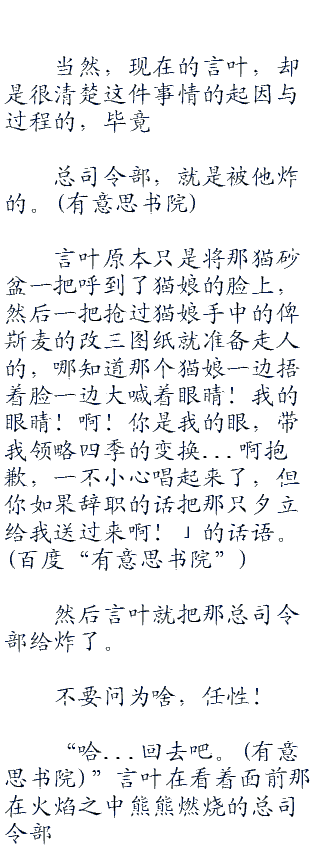 当然，现在的言叶，却
是很清楚这件事情的起因与
过程的，毕竟
总司令部，就是被他炸
的。(有意思书院)
言叶原本只是将那猫砂
盆一把呼到了猫娘的脸上，
然后一把抢过猫娘手中的俾
斯麦的改三图纸就准备走人
的，哪知道那个猫娘一边捂
着脸一边大喊着眼睛！我的
眼睛！啊！你是我的眼，带
我领略四季的变换...啊抱
歉，一不小心唱起来了，但
你如果辞职的话把那只夕立
给我送过来啊！」的话语。
(百度“有意思书院”)
然后言叶就把那总司令
部给炸了。
不要问为啥，任性！
“哈...回去吧。(有意
思书院)”言叶在看着面前那
在火焰之中熊熊燃烧的总司
令部